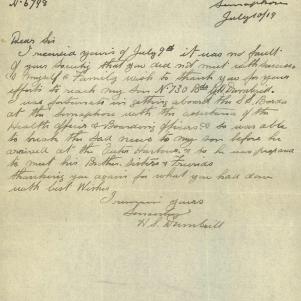 Nº 6798
Semaphore
July 10/19
Dear Sir
I received yours of July 9th it was no fault
of your Society that you did not meet with success
& Myself & Family wish to thank you for your
efforts to reach my Son Nº 730
I was fortunate in getting aboard the S.S. Borda
at the Semaphore with the assistance of the
Health Officer & Boarding officers & so was able
to break the sad news to my son before he
arrived at the Outer Harbour, & so he was prepared
to meet his Brother Sisters & Friends
thanking you again for what you had done
with best Wishes
I remain yours
Sincerely
H. S.